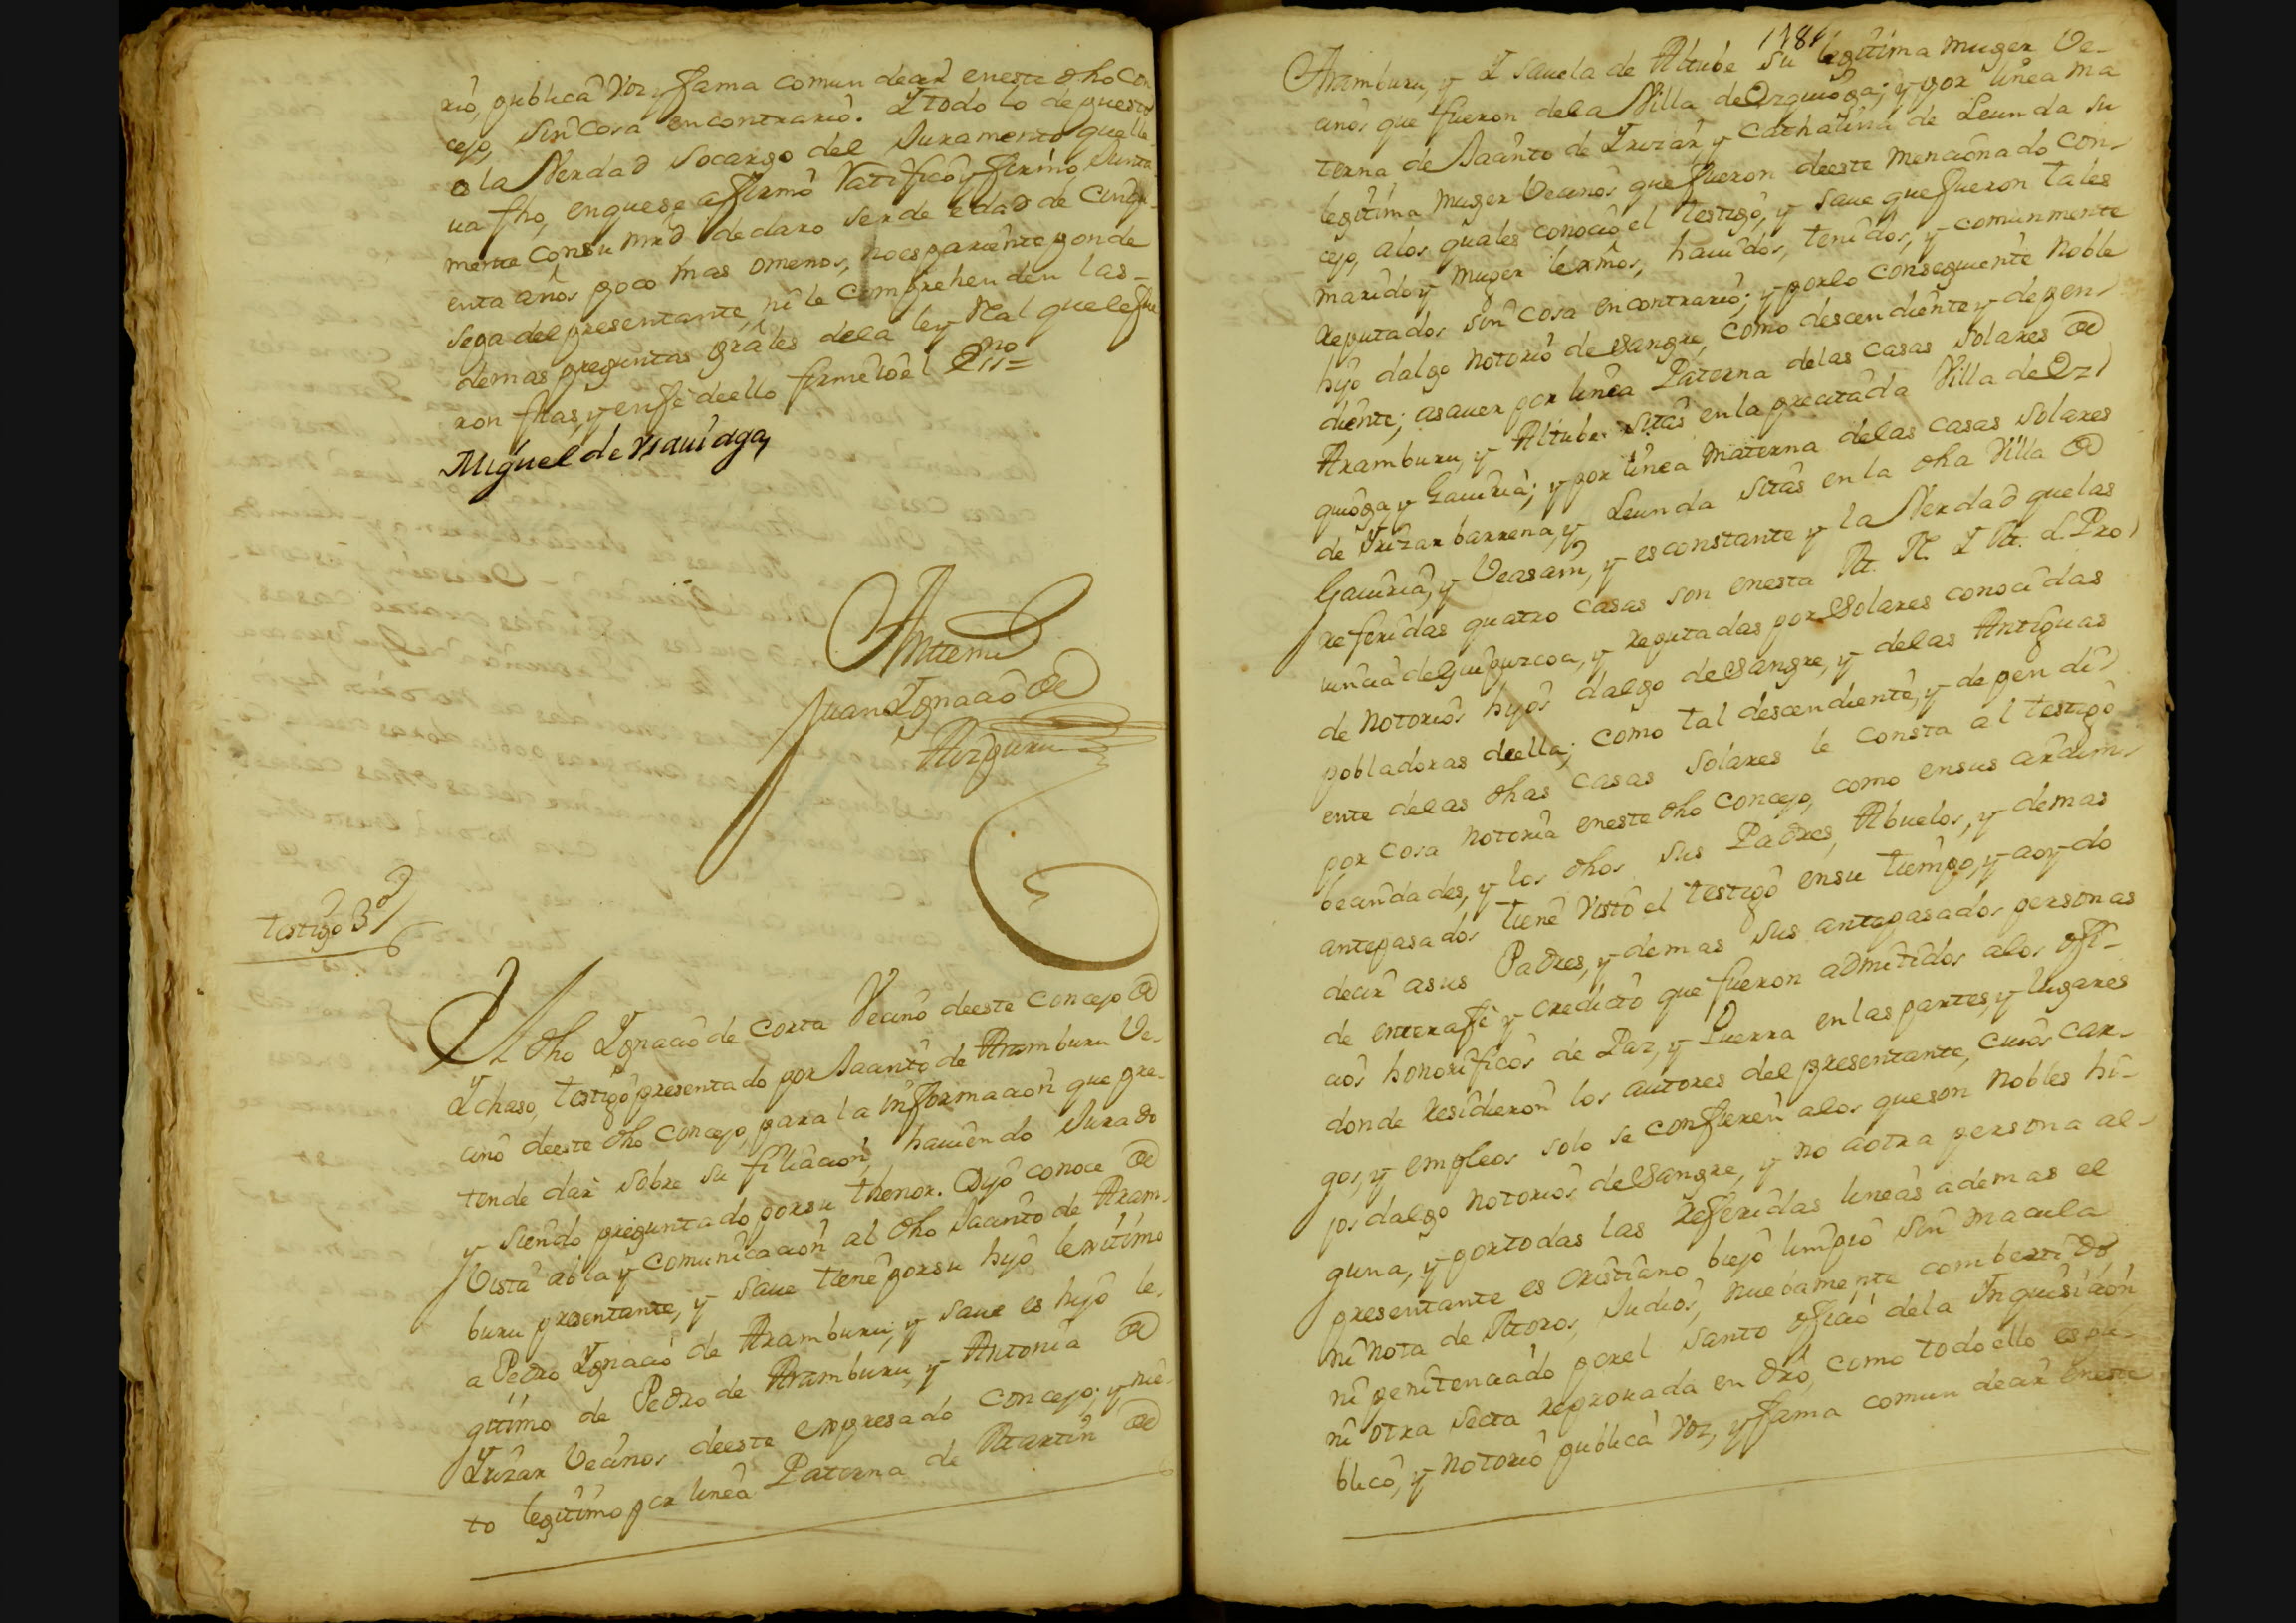 rio, publica voz, y fama comun decir en este dho con
cejo, sin cosa en contrario. Y todo lo depuesto
es la Verdad socargo del Juramento que lle
va fho, en que se afirmò ratificò, y firmò Junta
mente con su mrd declaro ser de edad de cinqu
enta años poco mas omenos, no es pariente gonde
sepa del presentante, ni le comprehenden las
demas preguntas grâles dela ley Real que le fue
ron fhas, y en fê de ello firmê Io êl Essno=
Miguel de Ysauidaga
Antemi
Juan Ygnacio de
Aizpuru
testigo 3º
El dho Ygnacio de Corta Vecino deeste Concejo de
Ychaso, testigo presentado por Jacinto de Aramburu Ve-
cino deeste dho Concejo, para la informacion que pre-
tende dar sobre su filiacion, haviendo Jurado
y siendo preguntado por su thenor. Dijo conoce de
Vista abla y comunicacion al dho Jacinto de Aram-
buru presentante, y save tiene por su hijo lexitimo
a Pedro Ygnacio de Aramburu; y save es hijo le-
gitimo de Pedro de Aramburu, y Antonia de
Yrizar Vecinos deeste expresado Concejo; y nie-
to legitimo por linea Paterna de Martin de
Aramburu, y Ysavela de Altube su legitima muger Ve-
cinos que fueron dela Villa de Ozquioga; y por linea ma
terna de Jacinto de Yrizar y Cathalina de Leunda su
legitima muger Vecinos que fueron deeste mencionado Con-
cejo, alos quales conocio el testigo, y save que fueron tales
marido y muger lexmos, havidos, tenidos, y comunmente
reputados sin cosa en contrario; y por lo consequente Noble
hijo dalgo notorio de Sangre, como descendiente y depen-
diente; asaver por linea Paterna delas casas Solares de
Aramburu, y Altube sitas en la precitada Villa de Oz-
quioga, y Gaviria; y por linea Materna delas casas Solares
de Yrizar barrena, y Leunda sitas en la dha Villa de
Gaviria, y Veasain, y es constante y la Verdad que las
referidas quatro casas son en esta M. N. Y M. L. Pro-
vincia de Guipuzcoa, y reputadas por Solares conocidas
de notorios hijos dalgo de Sangre, y delas Antiguas
pobladoras de ella; como tal descendiente, y dependi-
ente delas dhas casas Solares le consta al testigo
por cosa notoria en este dho Concejo, como en sus circum-
becindades, y los dhos sus Padres, Abuelos, y demas
antepasados tiene visto el testigo en su tiempo, y aoydo
decir asus Padres, y demas sus antepasados personas
de entera fê y credicto que fueron admitidos alos ofi-
cios honorificos de Paz, y Guerra en las partes, y lugares
donde residieron los autores del presentante, cuios car-
gos, y empleos solo se confieren alos que son Nobles hi-
jos dalgo notorios de Sangre, y no aotra persona al-
guna, y por todas las referidas lineas ademas el
presentante es Cristiano biejo limpio sin macula
ni nota de Moros, Judios, nuebamente combertidos
ni penitenciado por el santo oficio dela Inquisicion
ni otra secta reprovada en dro, como todo ello es pu-
blico, y notorio publica voz, y fama comun decir en este